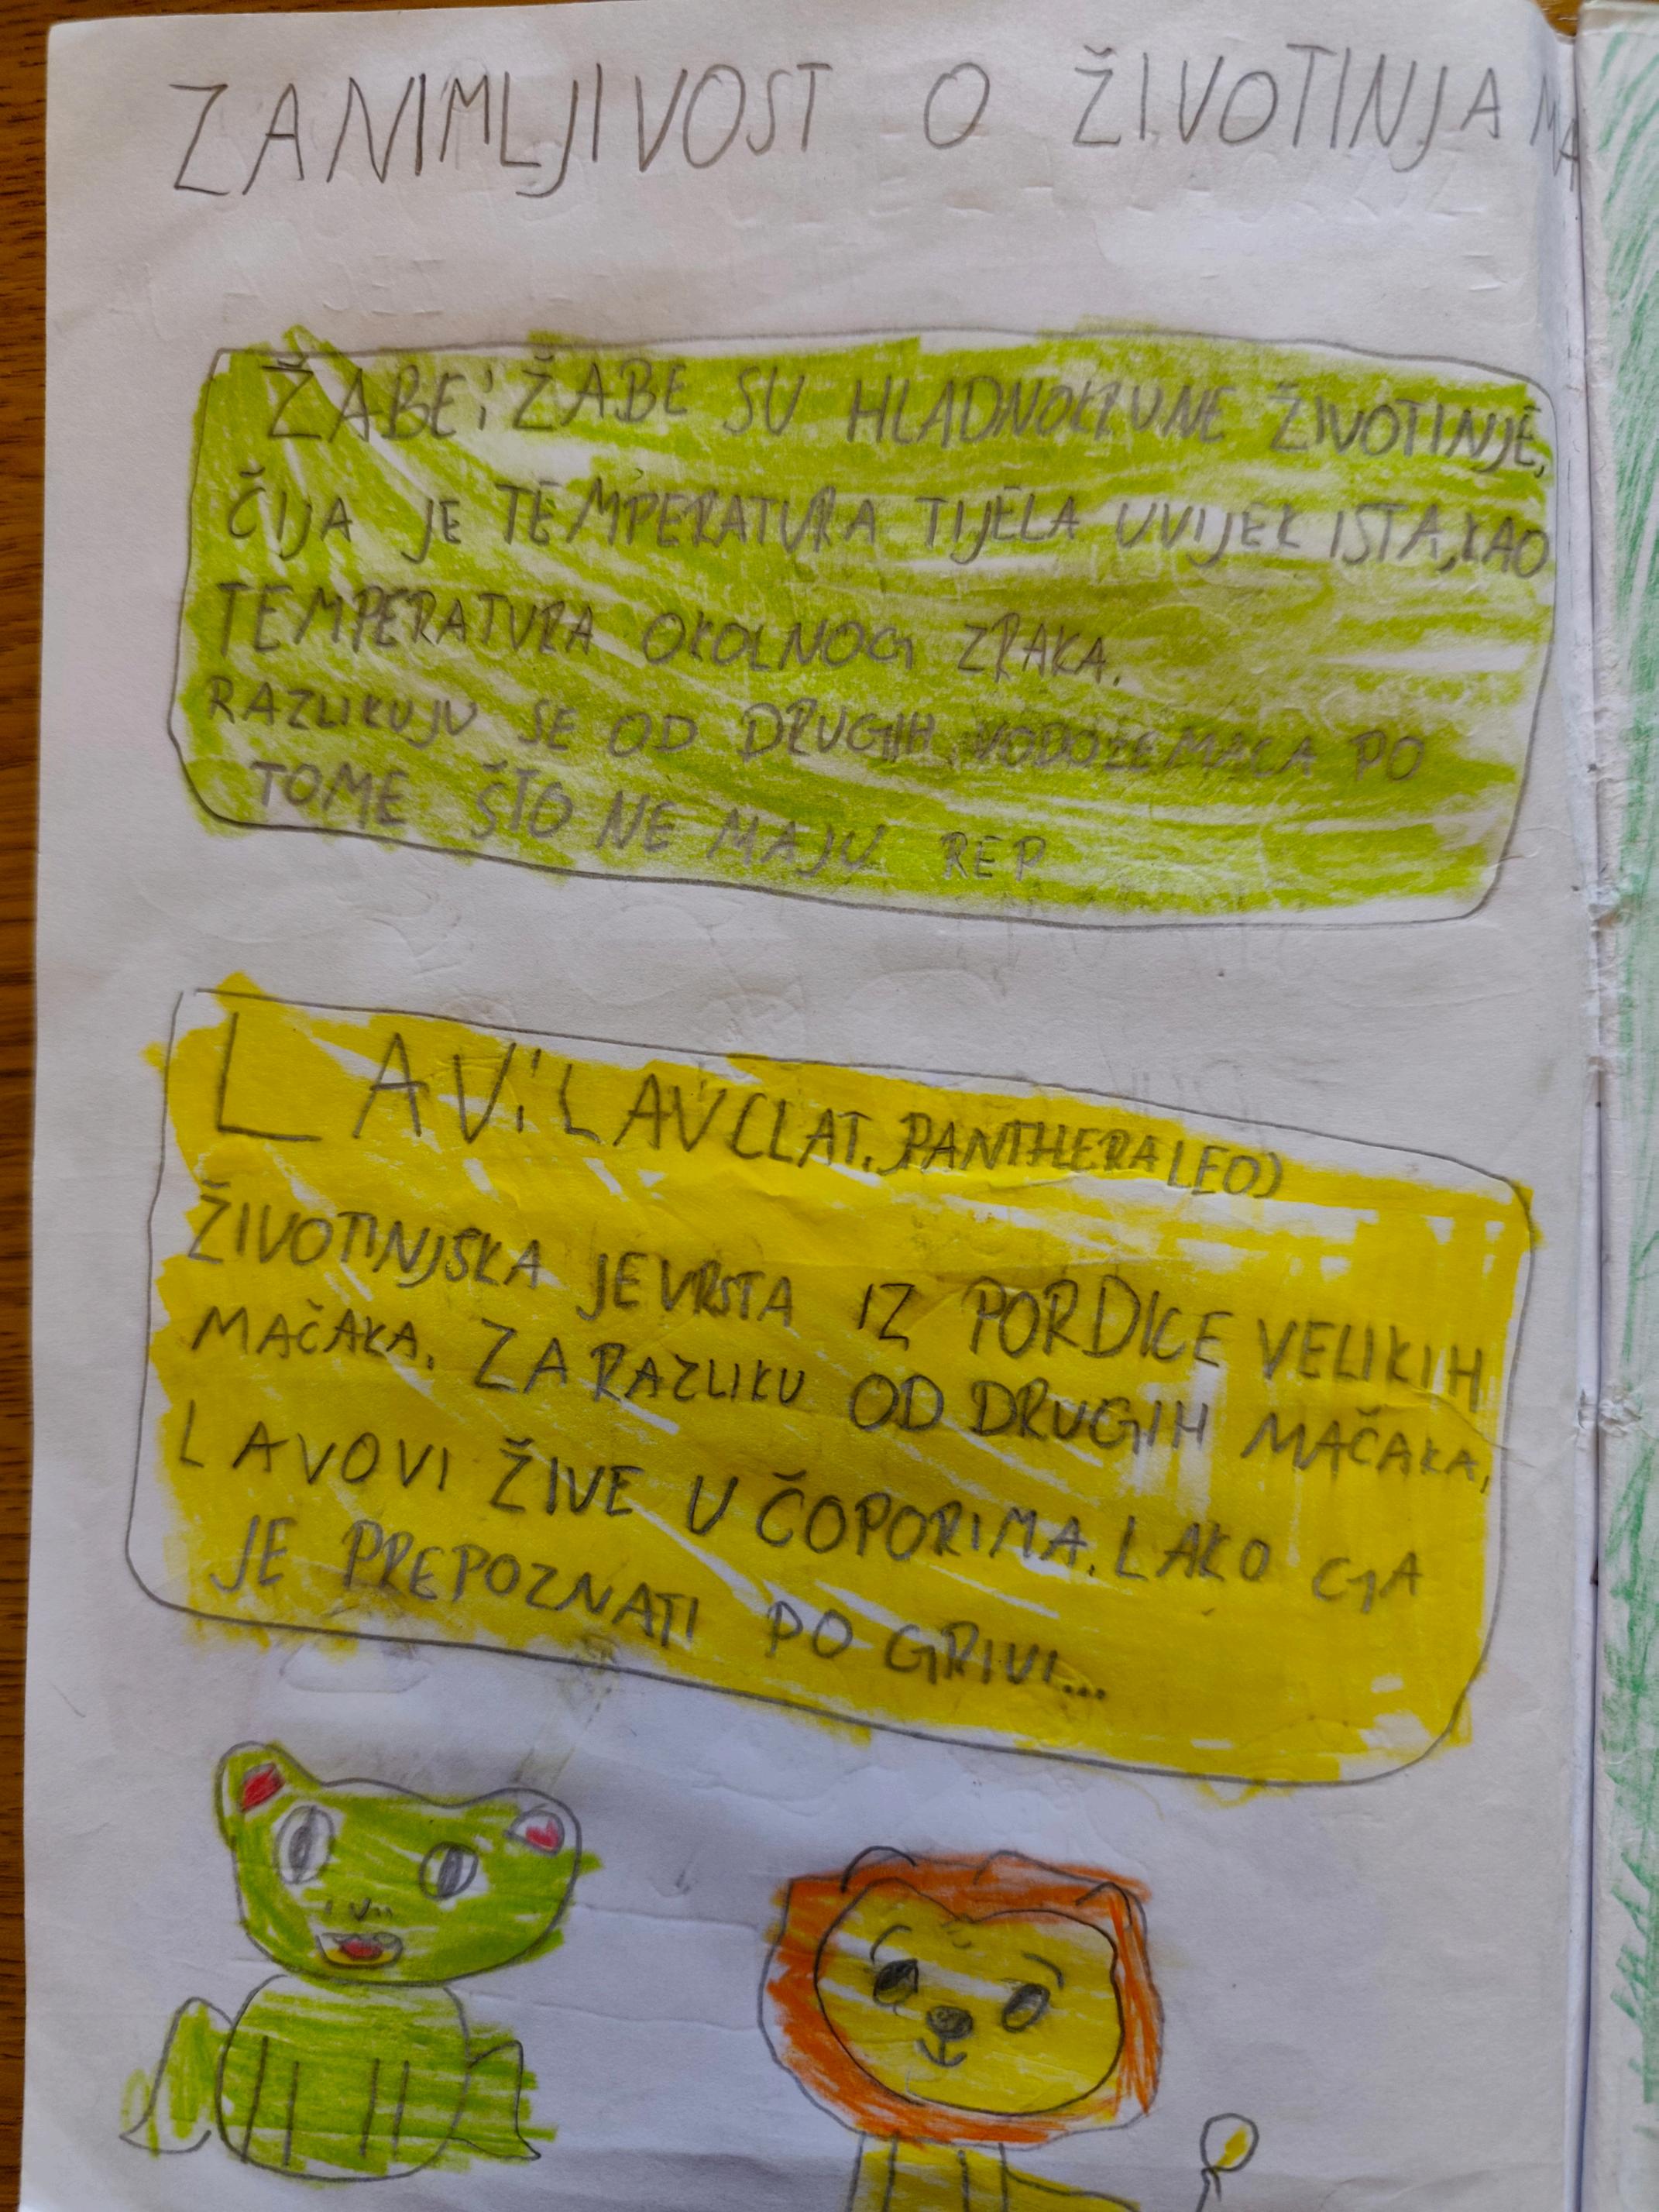 ZANIMLJIVOST O ŽIVOTINJAMA
ŽABE: ŽABE SU HLADNOKRVNE ŽIVOTINJE,
ČIJA JE TEMPERATURA TIJELA UVIJEK ISTA, KAO
TEMPERATURA OKOLNOG ZRAKA.
RAZLIKUJU SE OD DRUGIH VODOZEMACA PO
TOME ŠTO NE MAJU REP
LAV: LAV (LAT. PANTHERA LEO)
ŽIVOTINJSKA JE VRSTA IZ PORDICE VELIKIH
MAČAKA. ZA RAZLIKU OD DRUGIH MAČAKA,
LAVOVI ŽIVE U ČOPORIMA. LAKO GA
JE PREPOZNATI PO GRIVI...